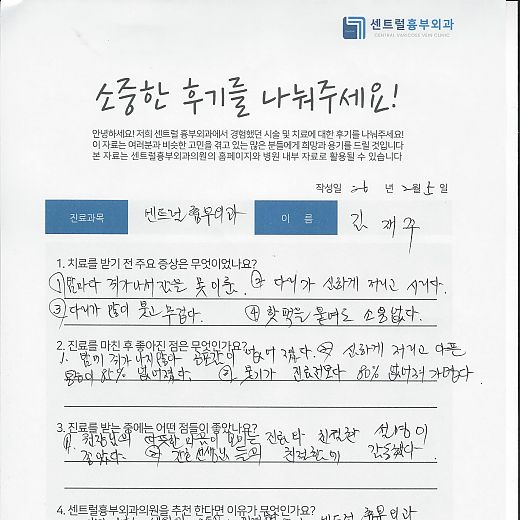 센트럴흉부외과
CENTRAL VARICOSE VEIN CLINIC
소중한 후기를 나눠주세요!
안녕하세요! 저희 센트럴 흉부외과에서 경험했던 시술 및 치료에 대한 후기를 나눠주세요!
이 자료는 여러분과 비슷한 고민을 겪고 있는 많은 분들에게 희망과 용기를 드릴 것입니다
본 자료는 센트럴흉부외과의원의 홈페이지와 병원 내부 자료로 활용될 수 있습니다
작성일 26 년 2월 5일
진료과목 센트럴 흉부외과 이 름 김 재주
1. 치료를 받기 전 주요 증상은 무엇이었나요?
① 밤마다 쥐가나서 잠을 못 이룸. ② 다리가 심하게 저리고 시리다.
③ 다리가 많이 붓고 무겁다. ④ 핫팩을 붙여도 소용없다.
2. 진료를 마친 후 좋아진 점은 무엇인가요?
1. 밤에 쥐가 나지않아 공포감이 없어졌다. ② 심하게 저리고 아픈
85% 없어졌다. ③ 붓기가 진료전보다 80% 없어져 가볍다.
3. 진료를 받는 중에는 어떤 점들이 좋았나요?
1. 원장님의 따뜻한 마음이 보이는 진료와 친절한 설명이
좋았다. ② 간호선생님들의 친절함에 감동했다.
4. 센트럴흉부외과의원을 추천 한다면 이유가 무엇인가요?
센트럴 흉부외과